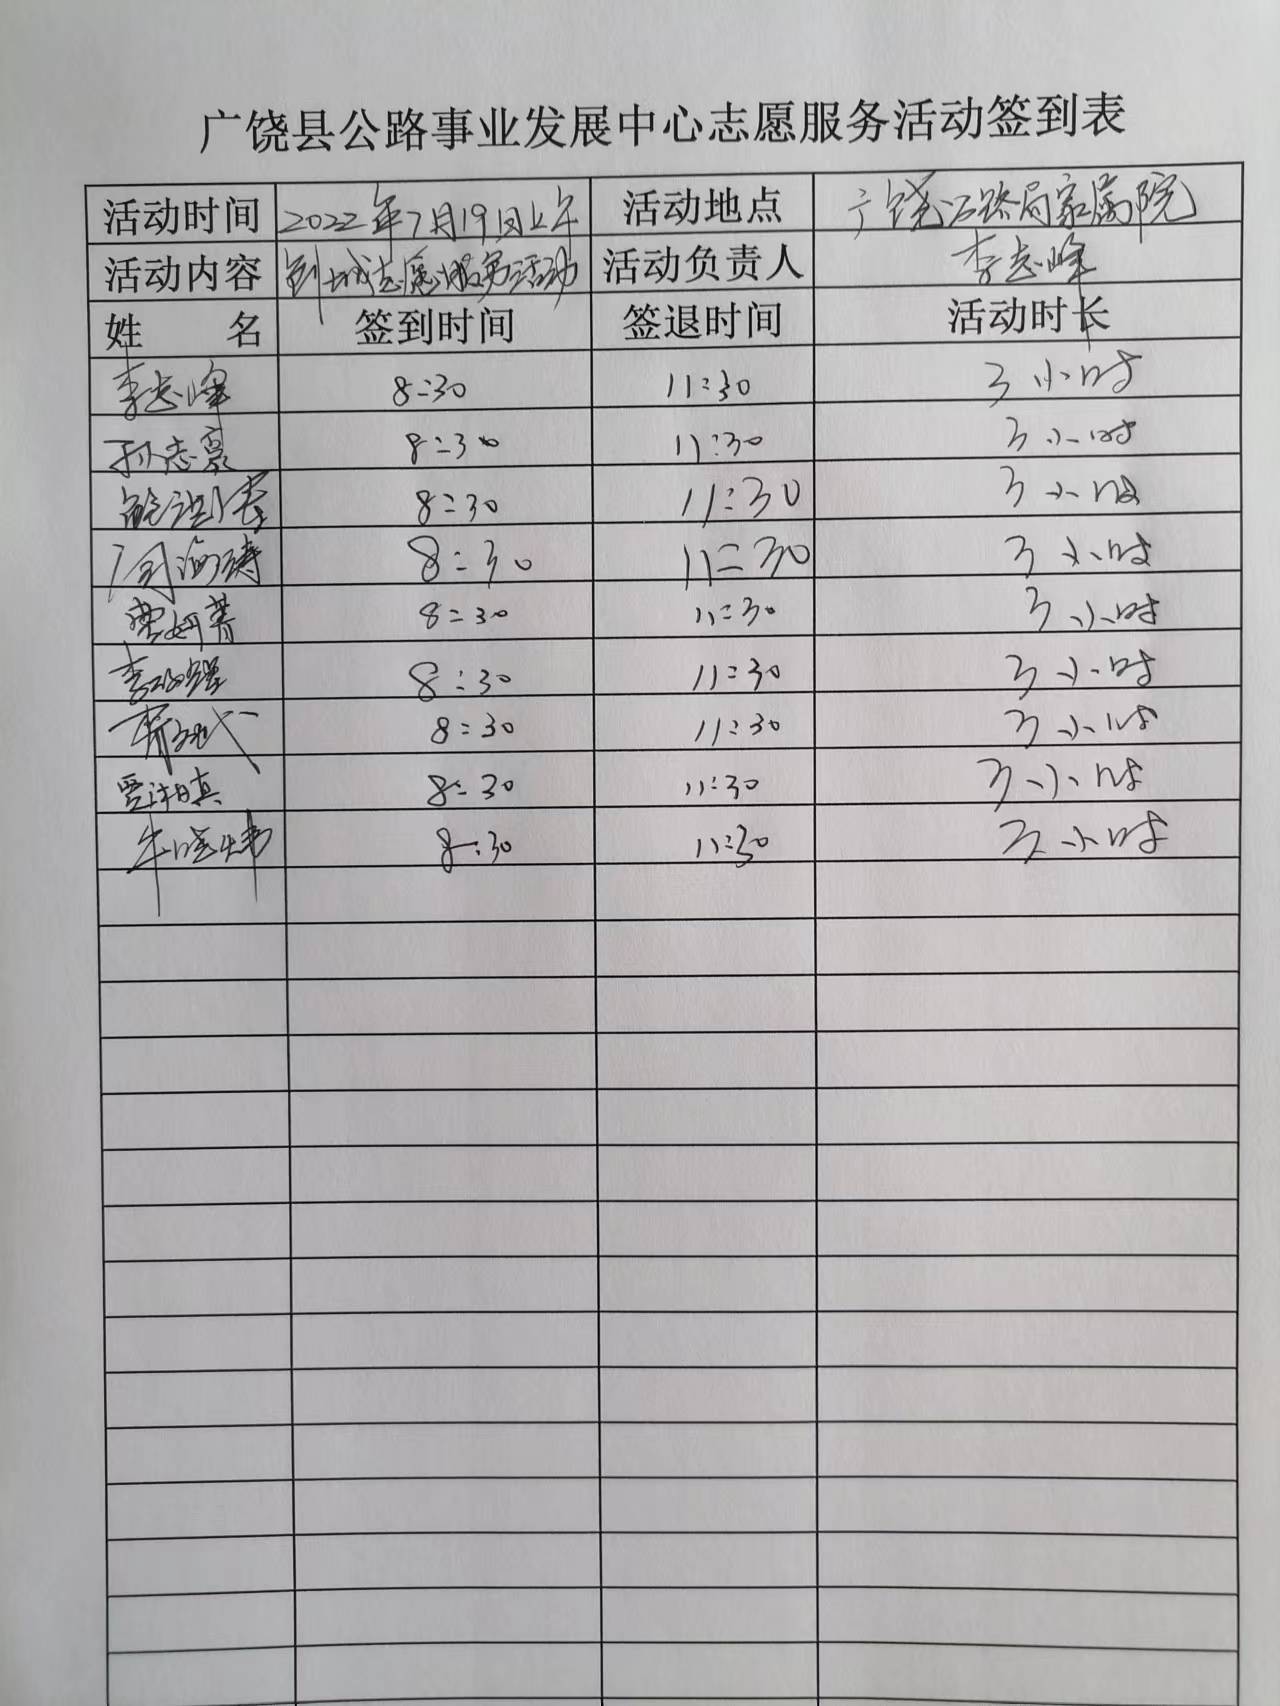 广饶县公路事业发展中心志愿服务活动签到表
活动时间 2022年7月19日上午 活动地点 广饶公路局家属院
活动内容 创城志愿服务活动 活动负责人 李志峰
姓 名 签到时间 签退时间 活动时长
李志峰 8:30 11:30 3小时
孙志豪 8:30 11:30 3小时
8:30 11:30 3小时
8:30 11:30 3小时
8:30 11:30 3小时
8:30 11:30 3小时
8:30 11:30 3小时
8:30 11:30 3小时
牛晓炜 8:30 11:30 3小时